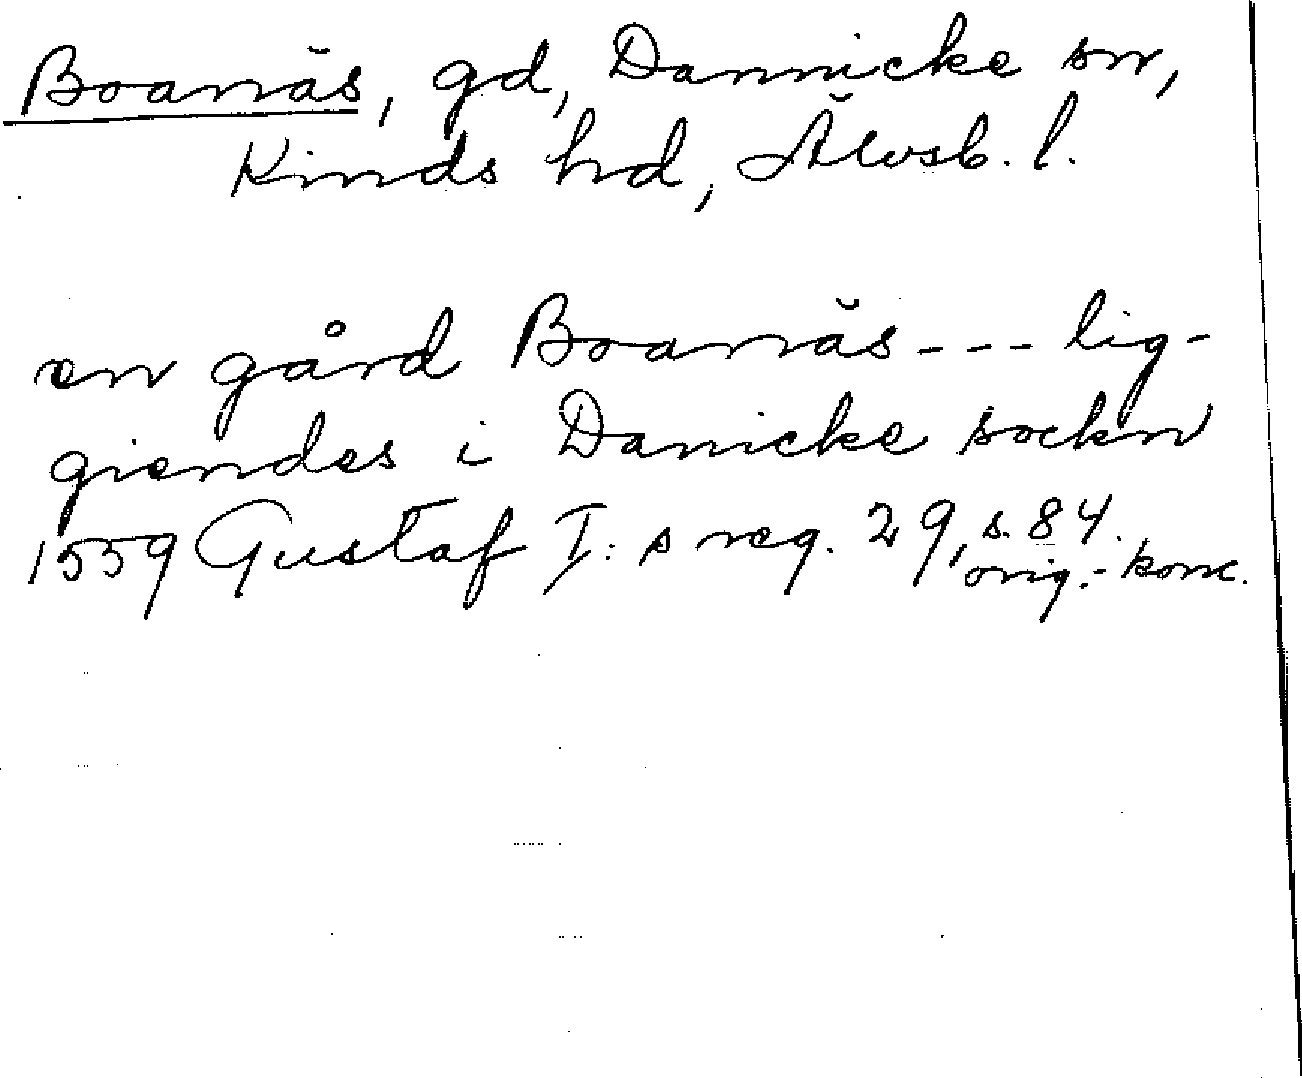 Boanäs, gd, Dannicke sn,
Kinds hd, Älvsb. l.
en gård Boanäs --- lig-
giendes i Danicke sockn
1559 Gustaf I: s reg. 29, s. 84.
orig.- konc.